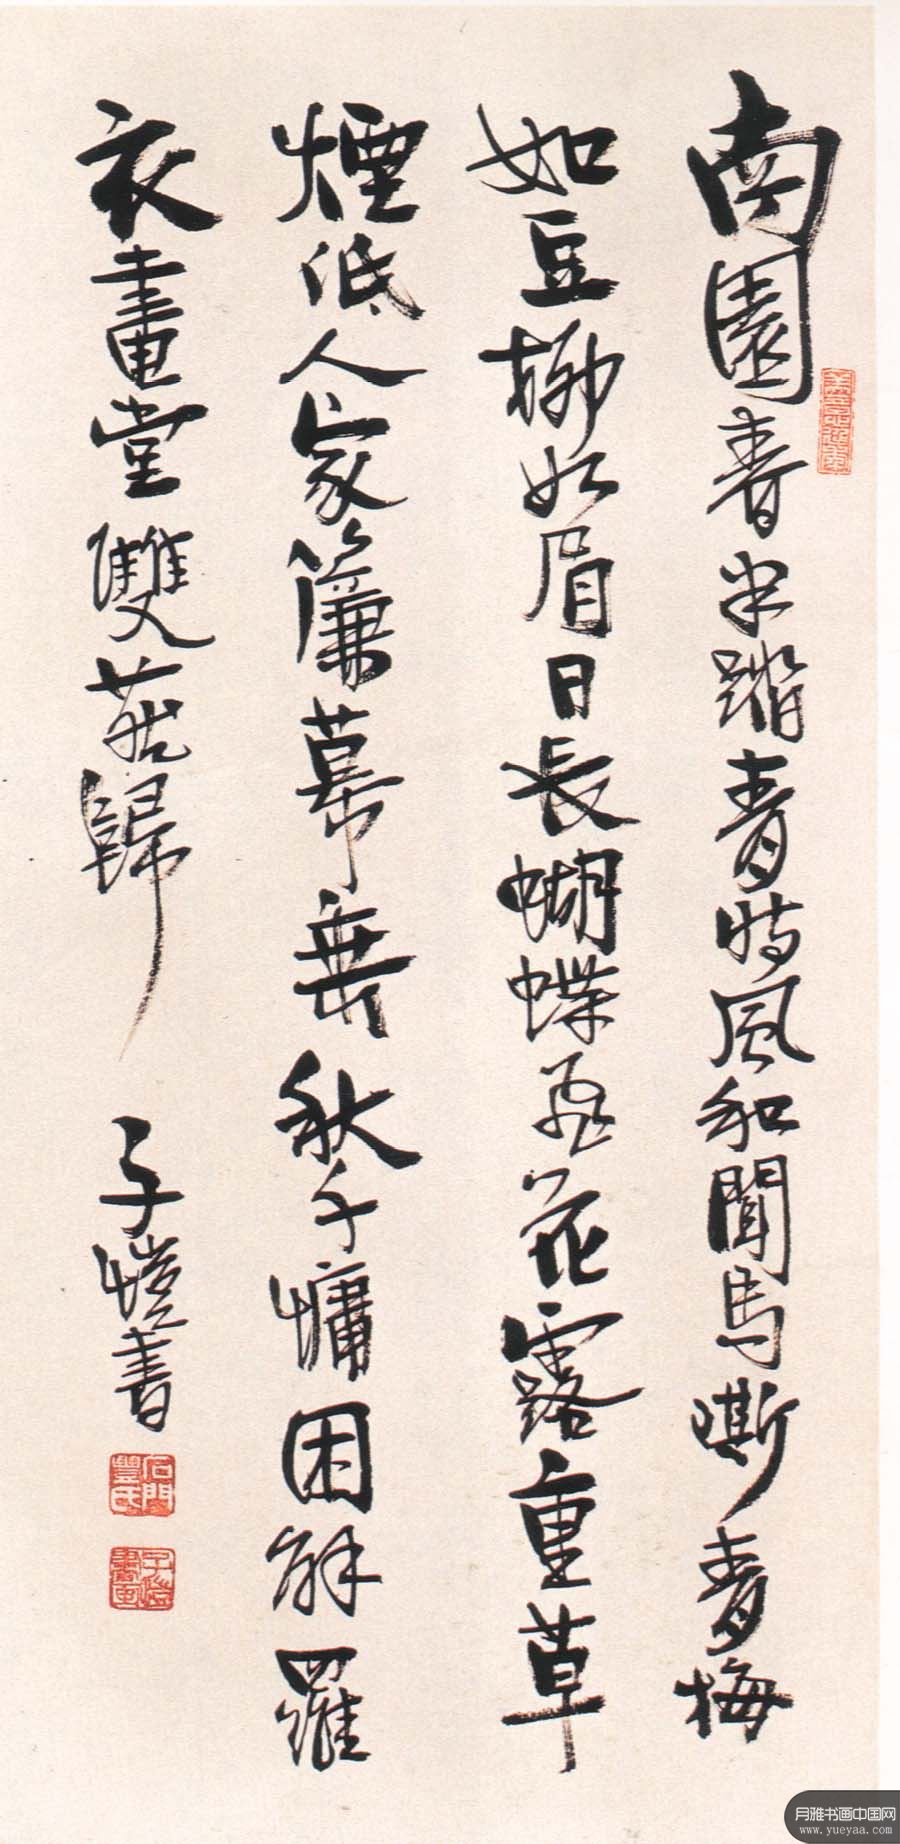 南園春半踏青時風和聞馬嘶青梅
如豆柳如眉日長蝴蝶飛花露重草
煙低人家簾幕垂秋千慵困解羅
衣畫堂雙燕歸
子愷書
石門豐氏
子愷書畫
月雅书画中国网
www.yueyaa.com